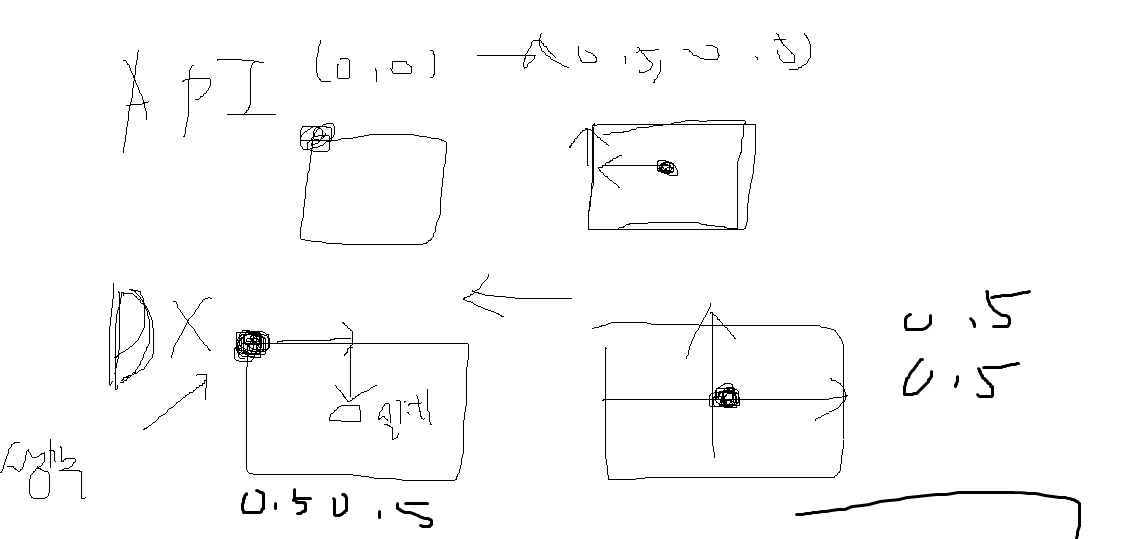 API (0,0) → (0.5, 0.5)
DX
0.5
0.5
0.5 0.5